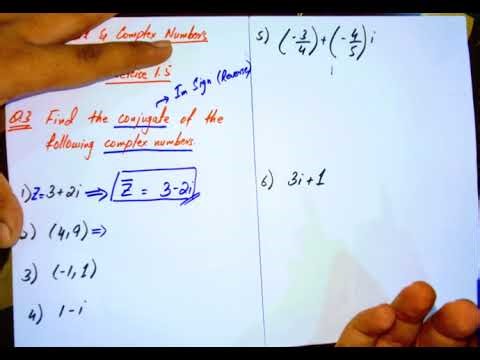 & Complex Numbers
1.5
Im Sign (Reverse)
Q3 Find the conjugate of the
following complex numbers.
1) Z=3+2i ⇒ Z̅ = 3-2i
2) (4,9) ⇒
3) (-1,1)
4) 1-i
5) (-3/4)+(-4/5)i
6) 3i+1